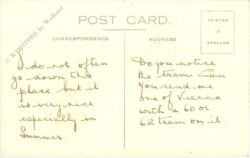 POST CARD.
CORRESPONDENCE
ADDRESS
PRINTED
IN
ENGLAND
I do not often
go down this
place but it
is very nice
especially in
Summer.
Do you notice
the tram. Can
you send me
one of Vienna
with a 60 or
62 tram on it.